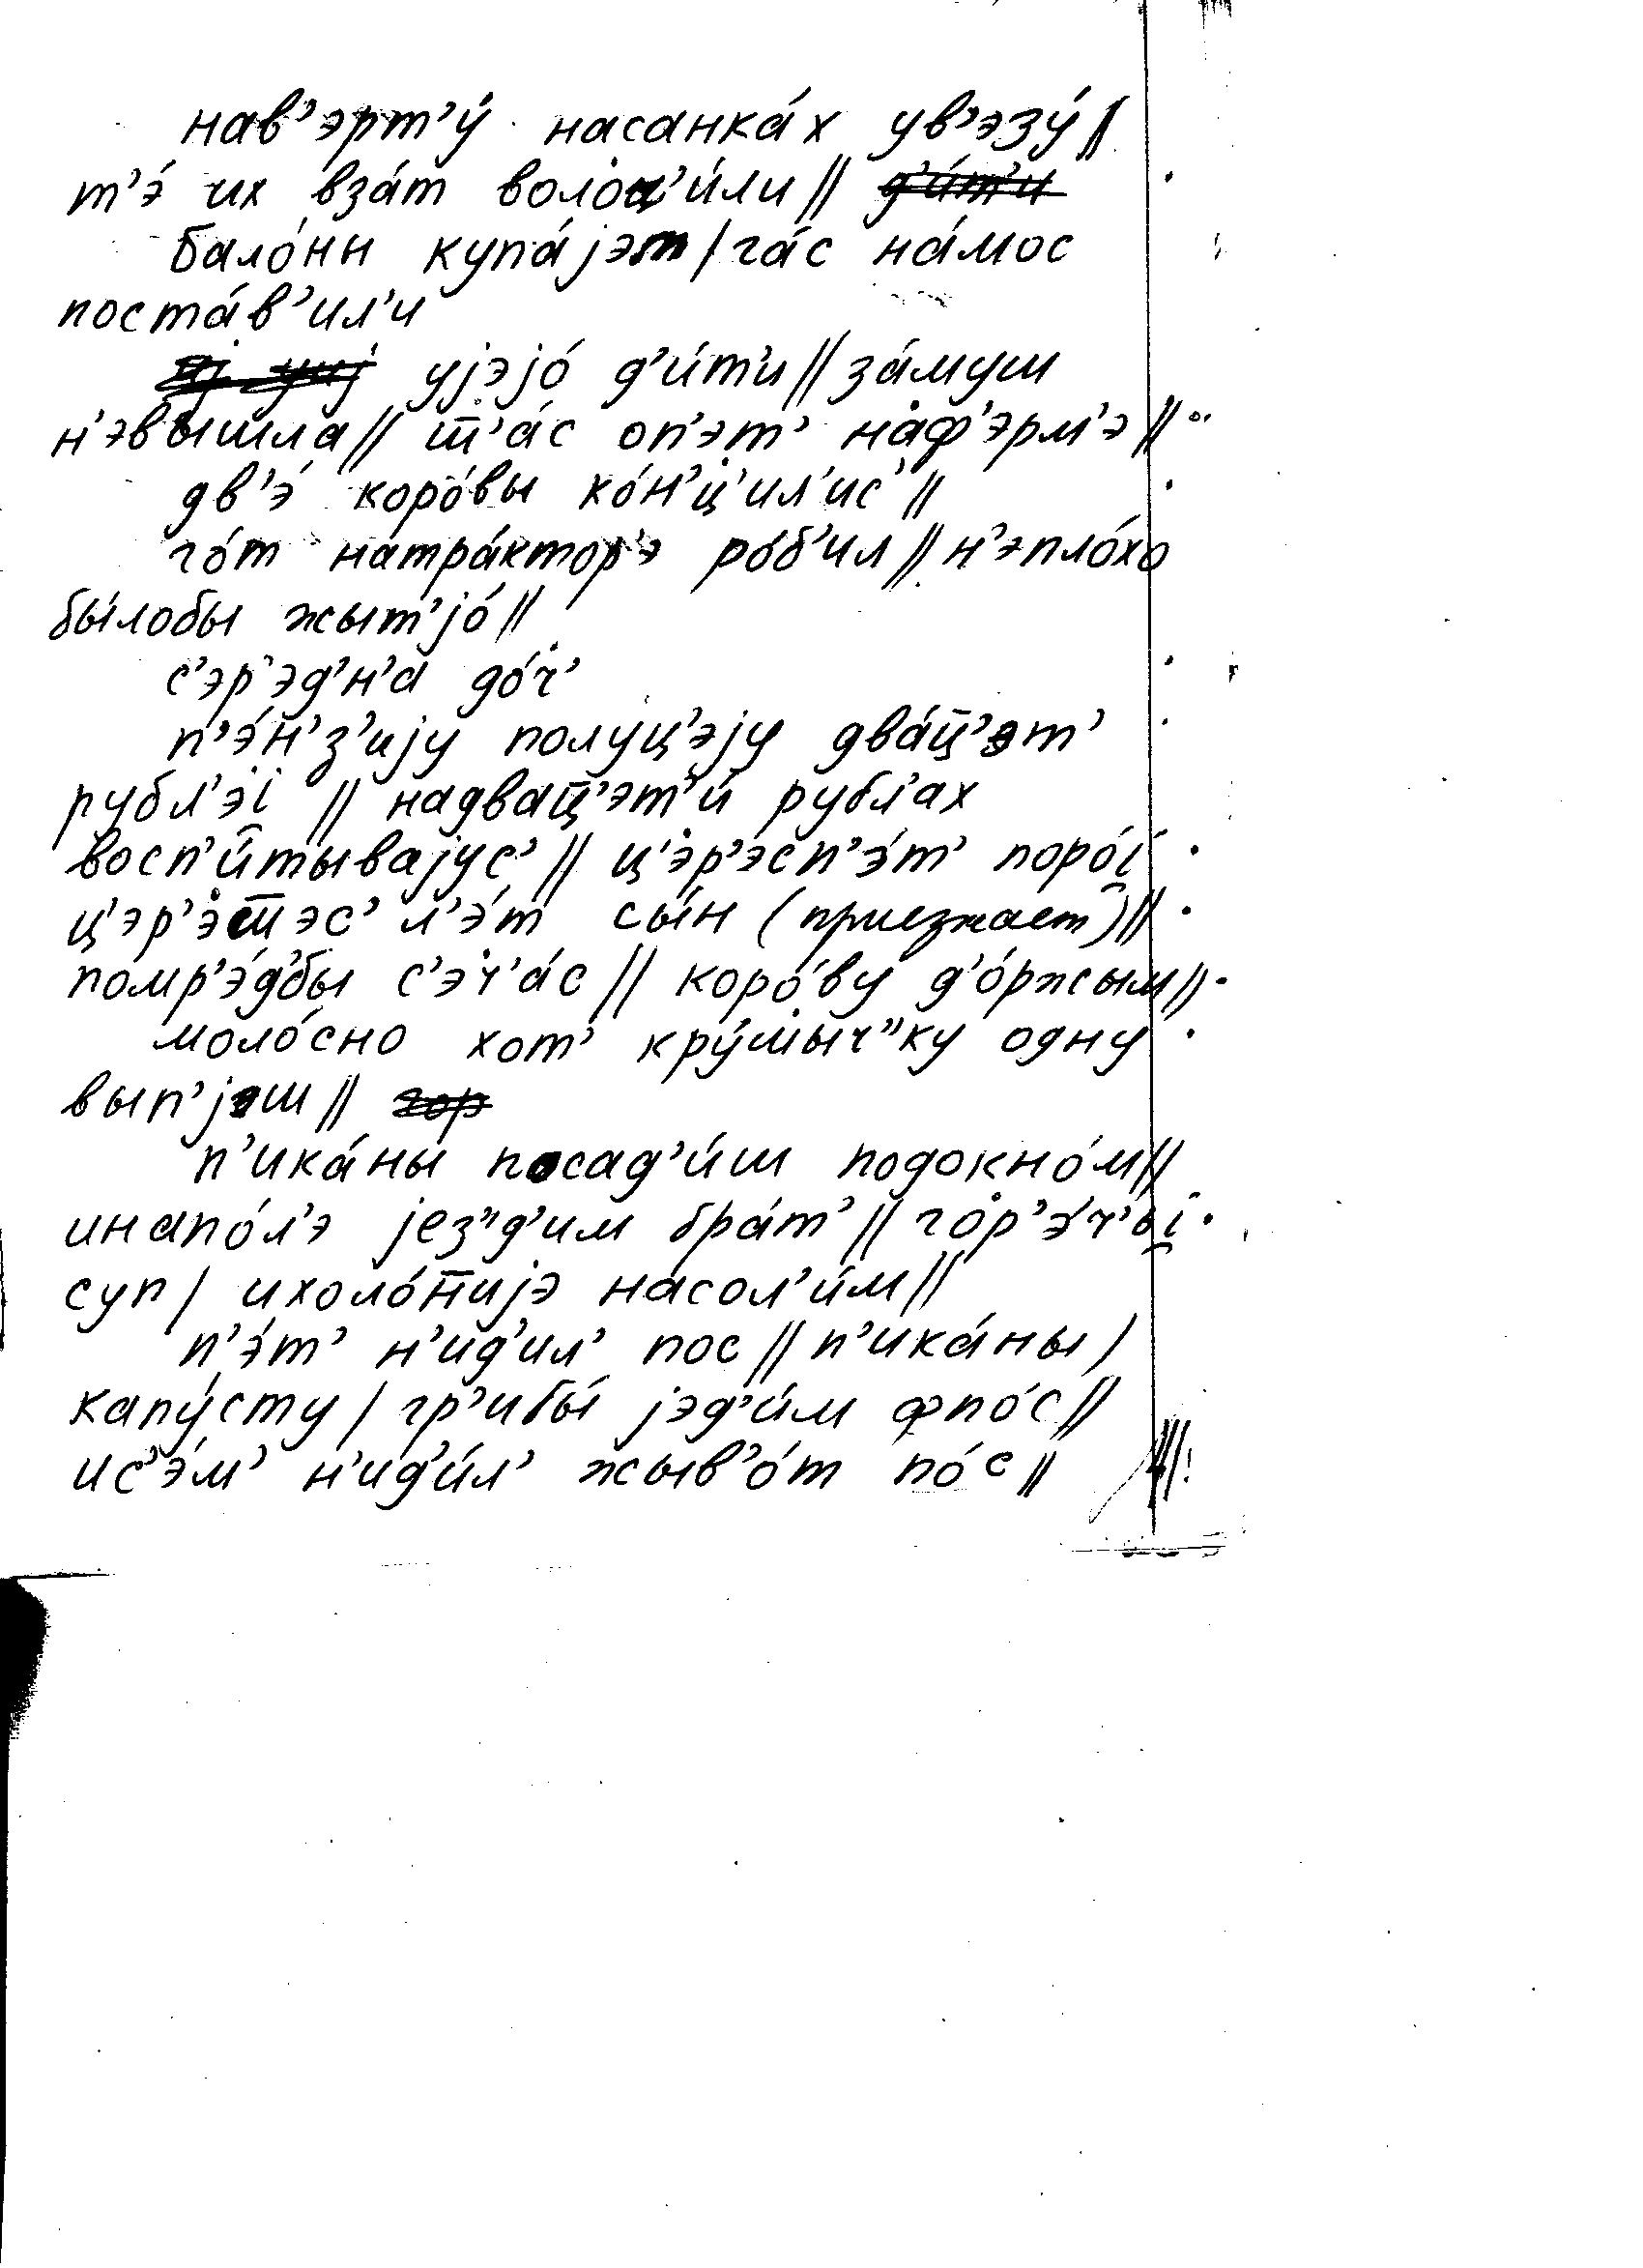 нав’эрт’у́ насанка́х ув’эзу́ ||
т’э́ их вза́т волоц’и́ли || д’и́т’и
бало́ны купа́јэт | га́с на́мос
поста́в’ил’и
ујэјо́ д’и́т’и || за́муш
н’эвышла || т̅’а́с оп’эт’ наф’эрм’э ||
дв’э́ коро́вы хо́н’ц’ил’ис’ ||
го́т натра́ктор’э ро́б’ил || н’эпло́хо
бы́лобы жыт’јо́ ||
с’эр’эд’н’а до́ч’
п’э́н’з’ију полуц’эју два́ц̅’эт’
рубл’эi̯ || надвац̅’эт’и́ рубл’ах
восп’и́тывајус’ || ц’эр’эсп’э́т’ поро́i̯
ц’эр’эт̅эс’ л’э́т сы́н (приезжает) ||
помр’э́д’бы с’эч’а́с || коро́ву д’о́ржым ||
моло́сно хот’ кру́шыч’’ку одну
вып’јэш || гор
п’ика́ны посад’и́ш подокно́м ||
инапо́л’э јез’’д’им бра́т’ || гор’э́ч’ьi̯
суп | ихоло́т̅ијэ насол’и́м ||
п’э́т’ н’ид’ил’ пос || п’ика́ны |
капу́сту | гр’ибы́ јэд’и́м фпо́с ||
ис’э́м’ н’ид’и́л’ жыв’о́т по́с ||